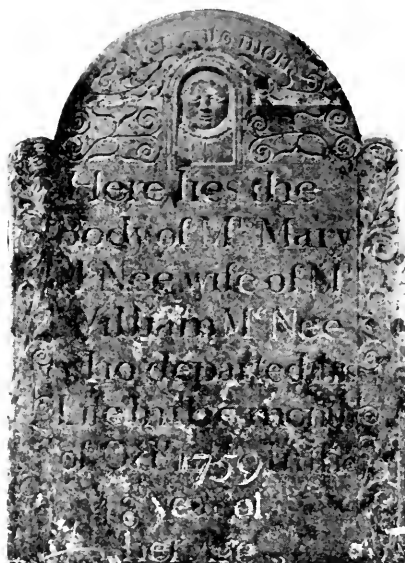 Memento mori
Here lies the
Body of Mrs Mary
McNee wife of Mr
William McNee
who departed this
Life in the
of Oct 1759 in the
year of
her age